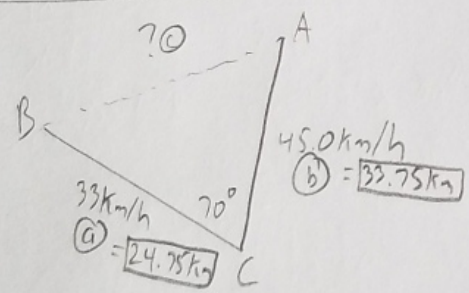 A
?ⓒ
B
45.0 km/h
ⓑ = 33.75 km
33 km/h
70°
ⓐ = 24.75 km
C